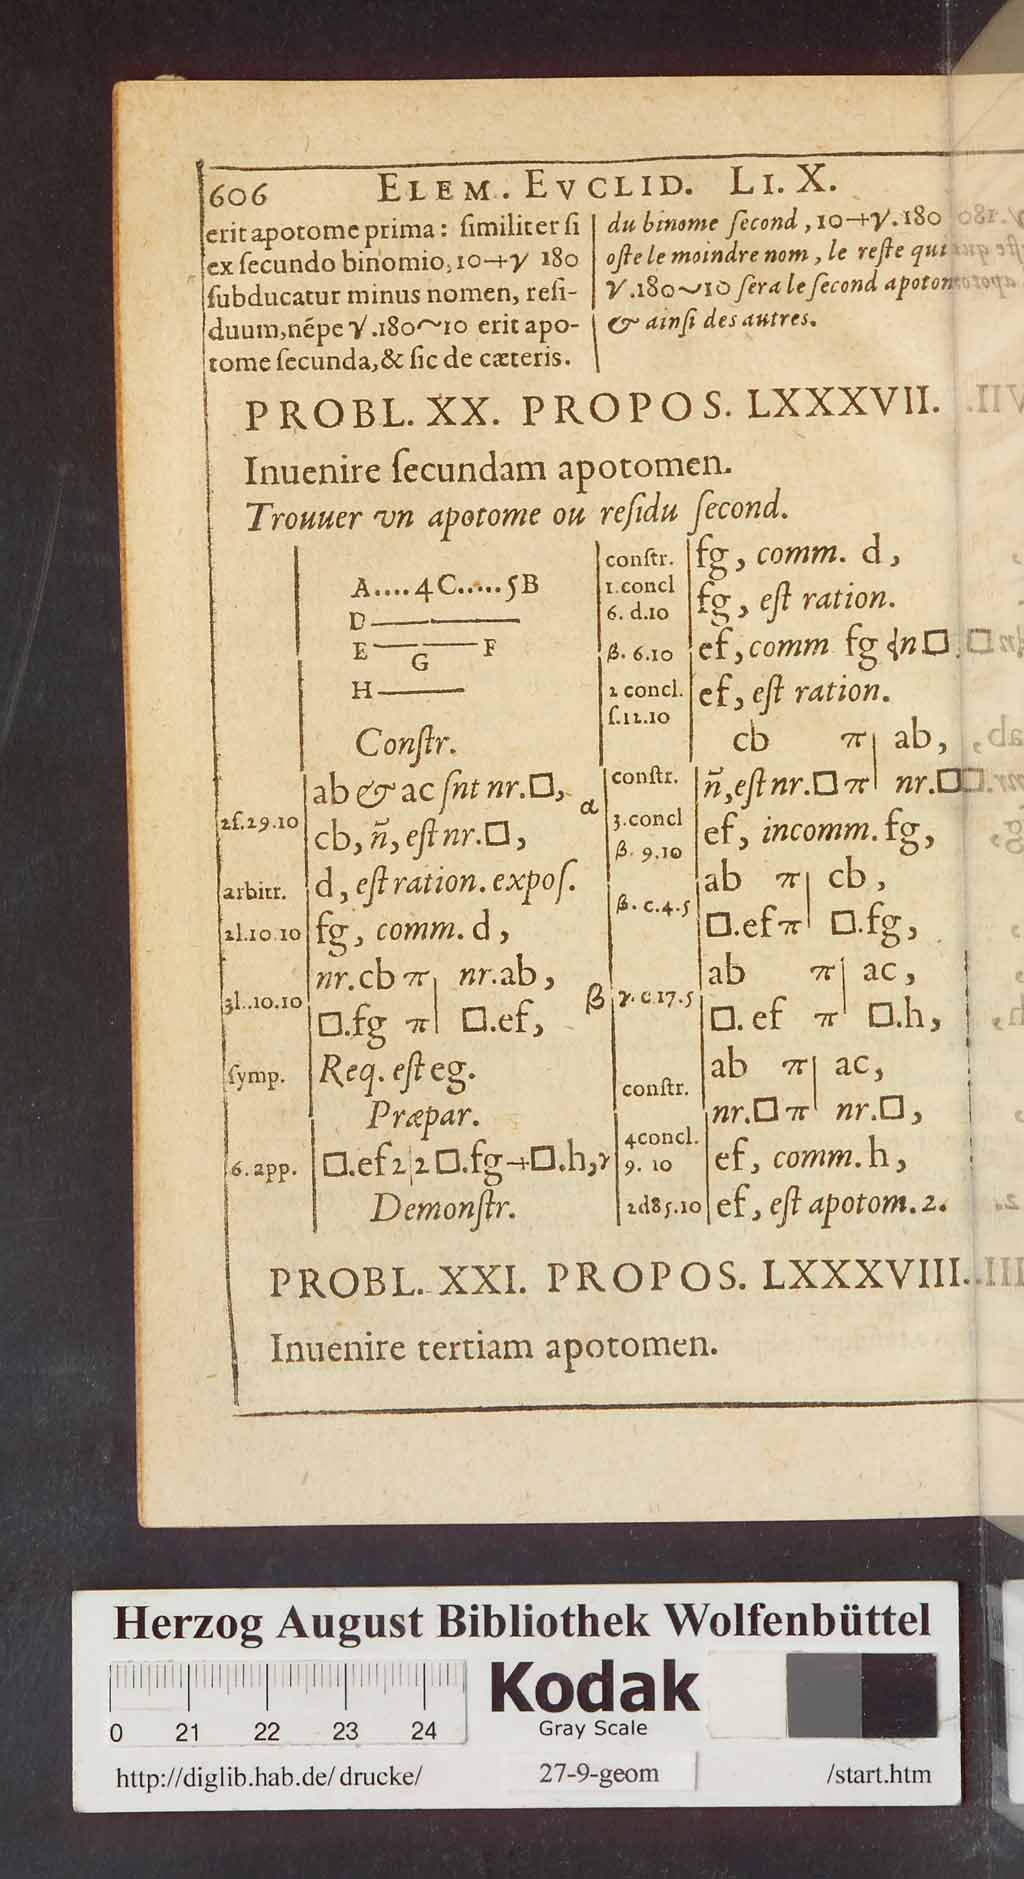 606 ELEM. EVCLID. LI. X.
erit apotome prima: ſimiliter ſi
ex ſecundo binomio, 10-+γ 180
ſubducatur minus nomen, reſi-
duum, nẽpe γ.180~10 erit apo-
tome ſecunda, & ſic de cæteris.
du binome ſecond, 10-+γ.180
oſte le moindre nom, le reſte qui
γ.180~10 ſera le ſecond apotom
& ainſi des autres.
PROBL. XX. PROPOS. LXXXVII.
Inuenire ſecundam apotomen.
Trouuer vn apotome ou reſidu ſecond.
A....4C.....5B
D
E G F
H
Conſtr.
ab & ac ſnt nr.□,
2ſ.29.10
cb, ñ, eſt nr.□, α
arbitr. d, eſt ration. expoſ.
2l.10.10 fg, comm. d,
nr.cb π| nr.ab,
3l.10.10 β
□.fg π| □.ef,
ſymp. Req. eſt eg.
Præpar.
6. app. □.ef 2|2 □.fg-+□.h, γ
Demonſtr.
conſtr. fg, comm. d,
1.concl
6. d.10 fg, eſt ration.
β. 6.10 ef, comm fg ɖn□.
2 concl. ef, eſt ration.
ſ.12.10
cb π| ab,
conſtr. ñ, eſt nr.□ π| nr.□
3.concl ef, incomm. fg,
β. 9.10
ab π| cb,
β. c.4.5
□.ef π| □.fg,
ab π| ac,
γ. c.17.5
□. ef π| □.h,
ab π| ac,
conſtr.
nr.□ π| nr.□,
4concl.
9. 10 ef, comm. h,
2d85.10 ef, eſt apotom. 2.
PROBL. XXI. PROPOS. LXXXVIII.
Inuenire tertiam apotomen.
Herzog August Bibliothek Wolfenbüttel
0 21 22 23 24
Kodak
Gray Scale
http://diglib.hab.de/drucke/ 27-9-geom /start.htm